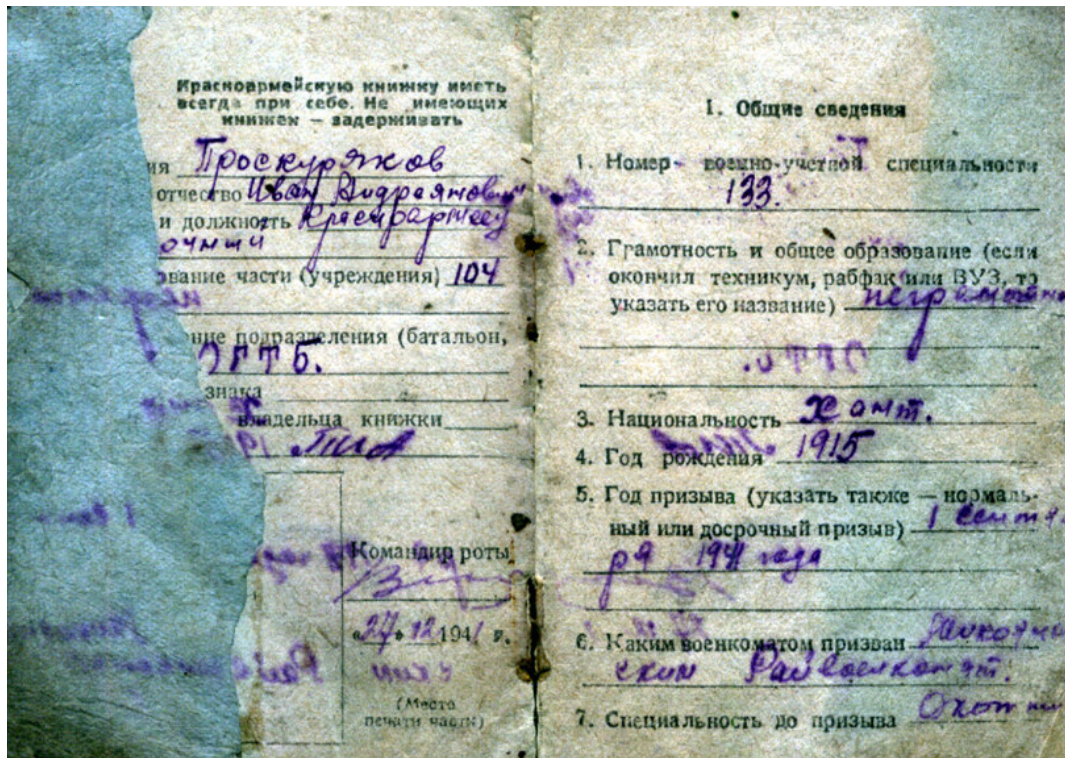 Красноармейскую книжку иметь
всегда при себе. Не имеющих
книжек — задерживать
ия Проскуряков
отчество Иван Андреянович
и должность Красноармеец
очный
ование части (учреждения) 104
ние подразделения (батальон,
ОГТБ.
знака
владельца книжки
Командир роты
«27» 12 1941 г.
(Место
печати части)
1. Общие сведения
1. Номер военно-учетной специальности
133.
2. Грамотность и общее образование (если
окончил техникум, рабфак или ВУЗ, то
указать его название) неграмотн
3. Национальность Хант.
4. Год рождения 1915
5. Год призыва (указать также — нормаль-
ный или досрочный призыв) 1 сентяб
ря 1941 года
6. Каким военкоматом призван
ский Райвоенкомат.
7. Специальность до призыва Охотник